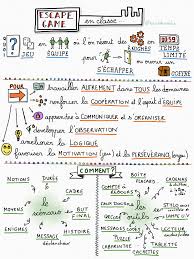 ESCAPE GAME
en classe
JEU
en ÉQUIPE
où l'on résout des
ÉNIGMES
en
TEMPS LIMITÉ
pour
S'ÉCHAPPER
ou
ouvrir un
COFFRE
POUR
travailler AUTREMENT dans TOUS les domaines
renforcer la COOPÉRATION et l'esprit d'ÉQUIPE
apprendre à COMMUNIQUER et à S'ORGANISER
développer l'OBSERVATION
améliorer la LOGIQUE
favoriser la MOTIVATION (jeu) et la PERSÉVÉRANCE
COMMENT ?
NOTIONS
DURÉE
CADRE
MOYENS
le scénario
BUT FINAL
ÉNIGMES
HISTOIRE
MESSAGE
DÉCODEUR
CADENAS
COMPTE À REBOURS
FAUX TIROIRS
CLÉS
LABYRINTHE
TABLETTE
CACHETTES